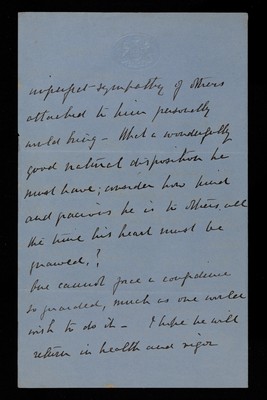 imperfect sympathy of others
attached to him personally
would bring - What a wonderfully
good natural disposition he
must have; consider how kind
and gracious he is to others, all
the time his heart must be
gnawed,?
One cannot force a confidence
so guarded, much as one would
wish to do it - I hope he will
return in health and vigor